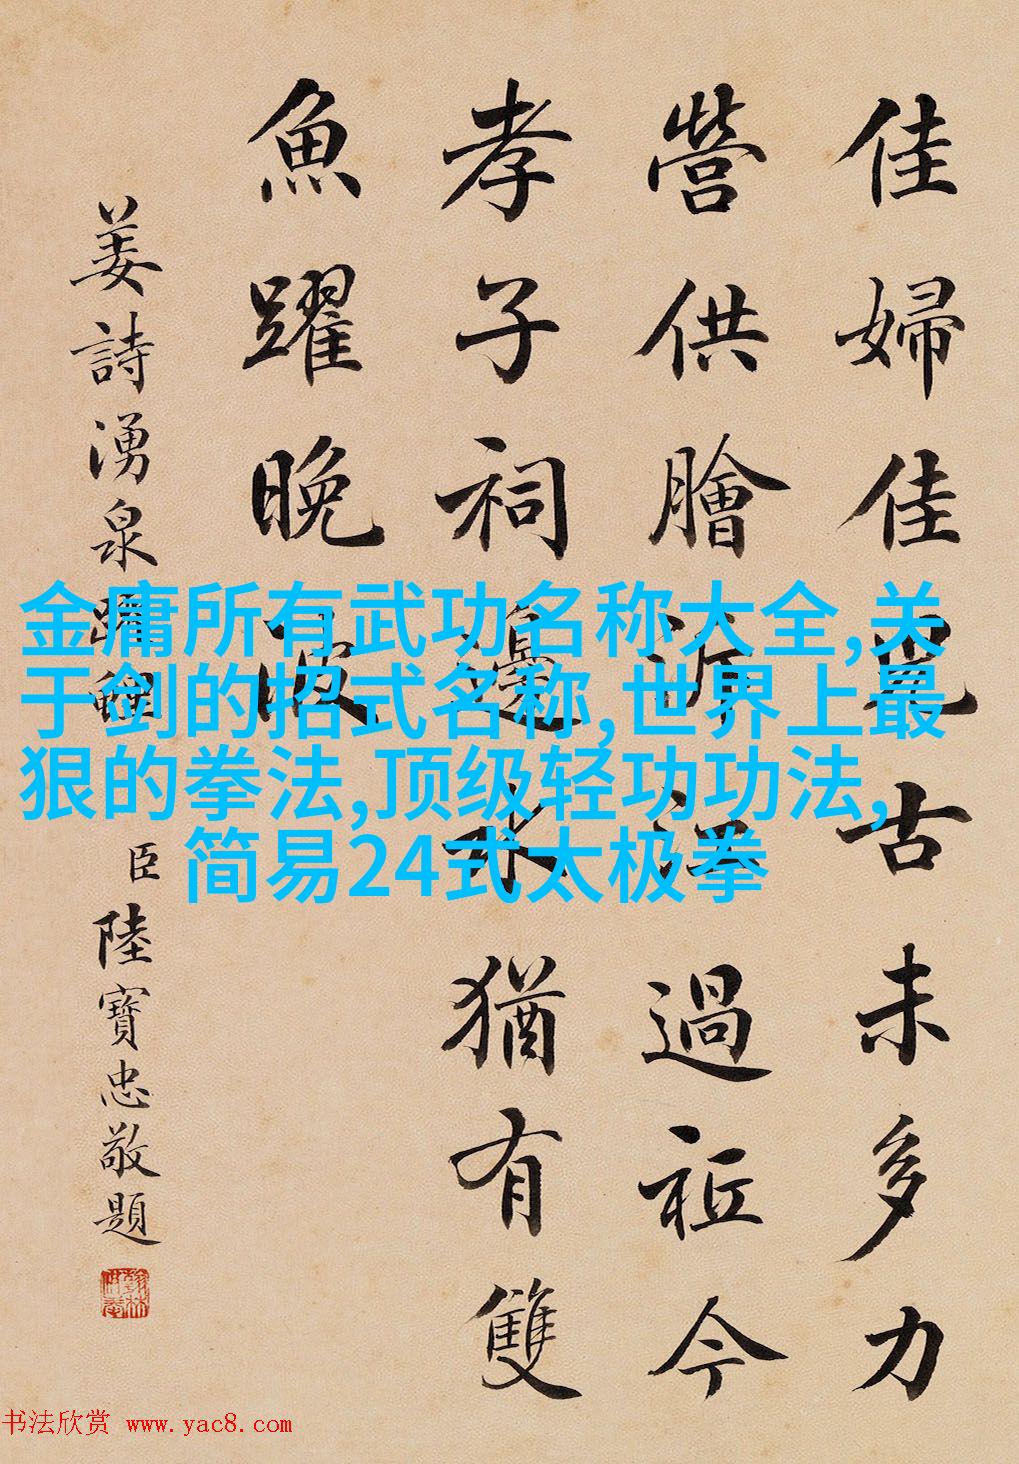 佳婦佳兒古未多力
營供膾泝江過祗今
孝子祠邊水猶有雙
魚躍晚波
姜詩湧泉躍鯉
臣陸寶忠敬題
金庸所有武功名称大全,关
于剑的招式名称,世界上最
狠的拳法,顶级轻功功法,
简易24式太极拳
书法欣赏 www.yac8.com